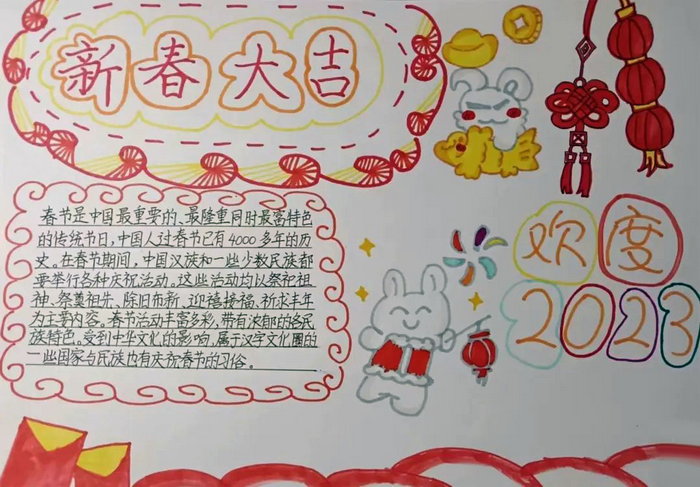 新春大吉
春节是中国最重要的、最隆重同时最富特色
的传统节日,中国人过春节已有4000多年的历
史。在春节期间,中国汉族和一些少数民族都
要举行各种庆祝活动。这些活动均以祭祀祖
神、祭奠祖先、除旧布新、迎禧接福、祈求丰年
为主要内容。春节活动丰富多彩,带有浓郁的各民
族特色。受到中华文化的影响,属于汉字文化圈的
一些国家与民族也有庆祝春节的习俗。
欢度
2023